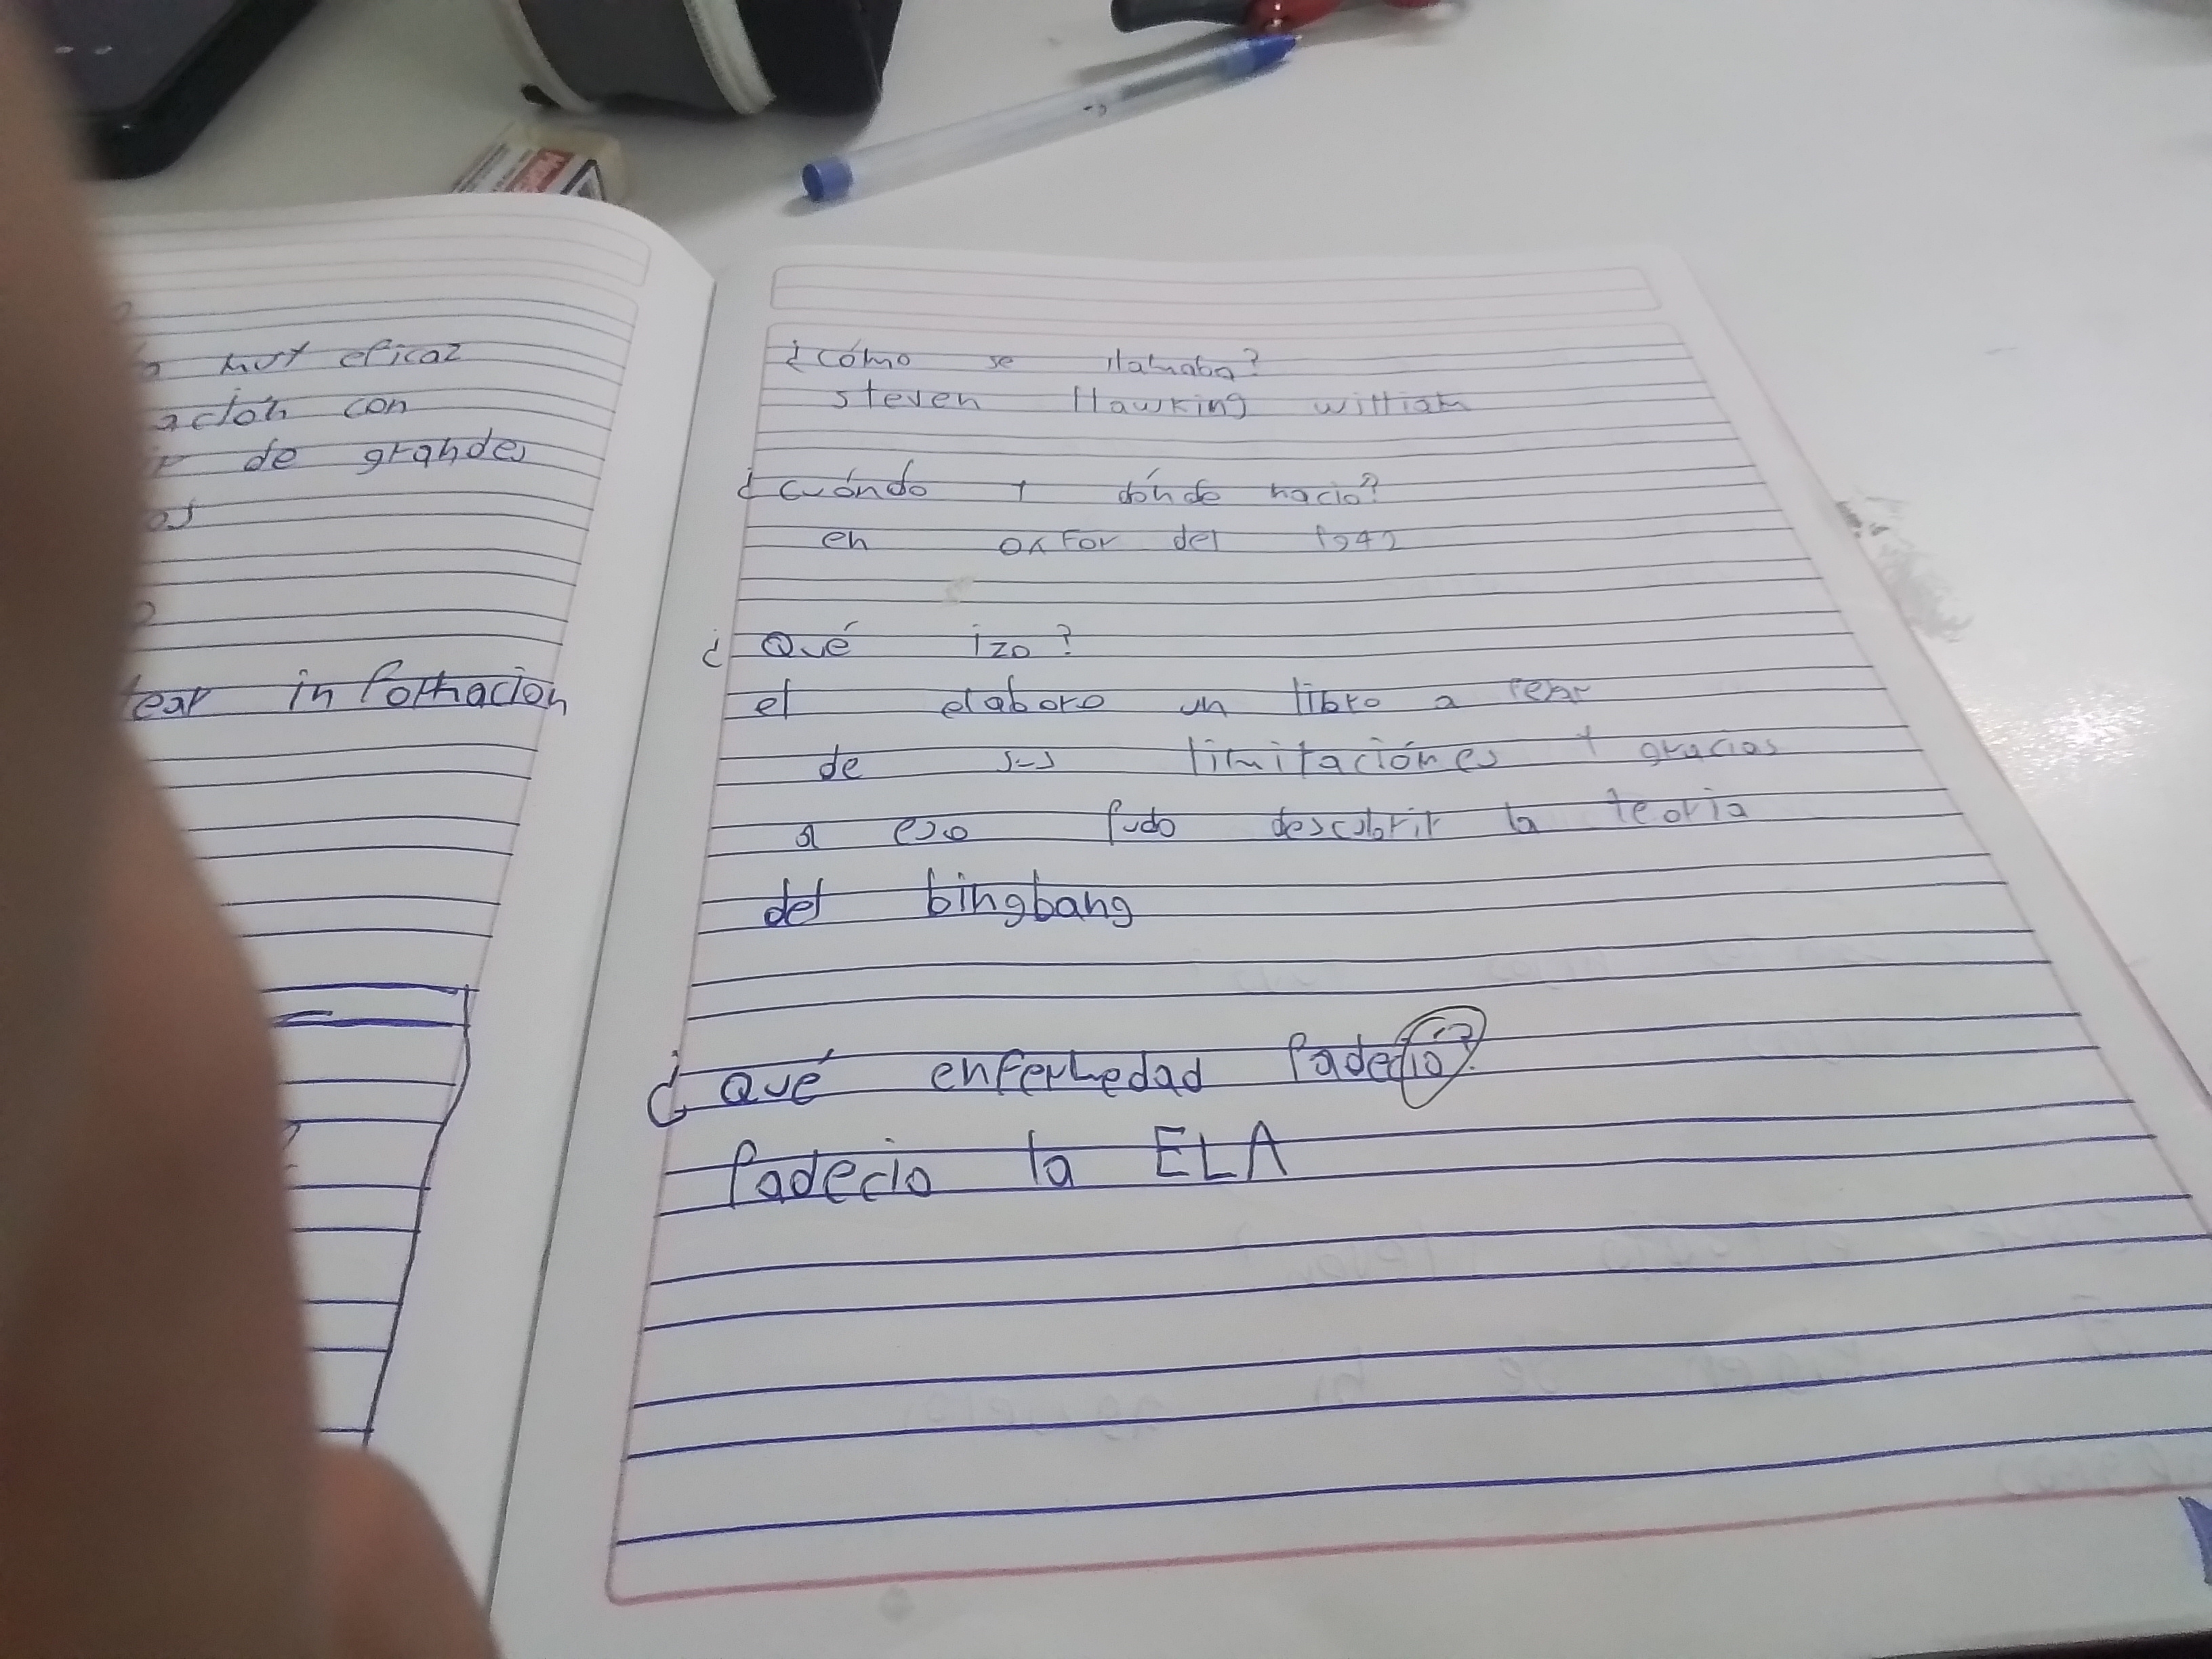 muy eficaz
ación con
de grandes
os
tear informacion
¿cómo se llamaba?
steven Hawking william
¿cuándo y dónde nacio?
en oxFor del 1942
¿Qué izo?
el elaboro un libro a pesar
de sus limitaciónes y gracias
a eso pudo descubrir la teoria
del bingbang
¿Qué enfermedad Padecio?
Padecio la ELA